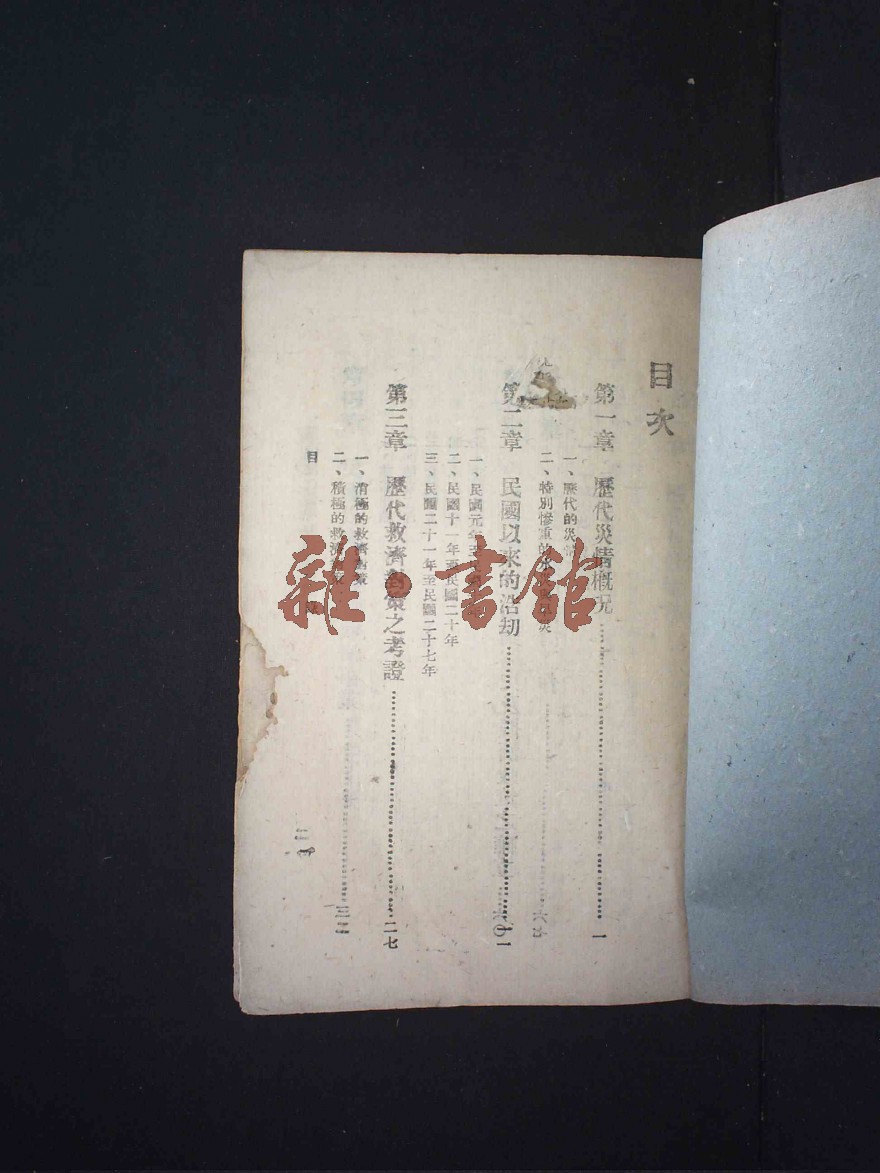 目次
第一章 歷代災情概況 一
一、歷代的災
二、特別慘重的
第二章 民國以來的浩劫 一一
一、民國元年至
二、民國十一年至民國二十年
三、民國二十一年至民國二十七年
第三章 歷代救濟對策之考證 二七
一、消極的救濟對策
二、積極的救濟
目
雜·書館